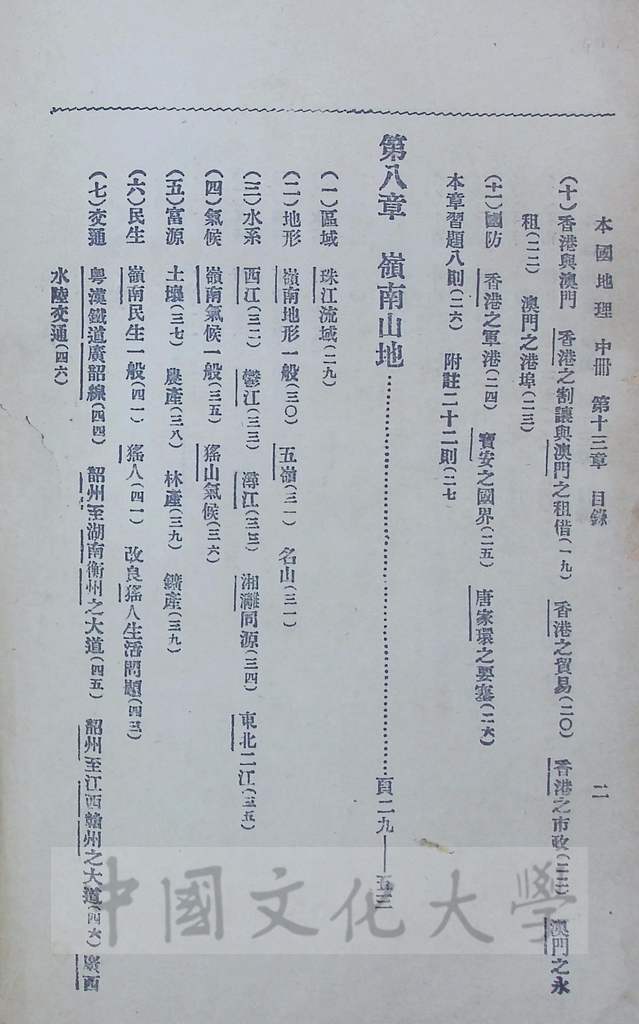 本國地理 中册 第十三章 目錄 二
(十)香港與澳門 香港之割讓與澳門之租借(一九) 香港之貿易(二〇) 香港之市政(二二) 澳門之永
租(二二) 澳門之港埠(二三)
(十一)國防 香港之軍港(二四) 寶安之國界(二五) 唐家環之要塞(二六)
本章習題八則(二六) 附註二十二則(二七
第八章 嶺南山地……頁二九——五三
(一)區域 珠江流域(二九)
(二)地形 嶺南地形一般(三〇) 五嶺(三一) 名山(三一)
(三)水系 西江(三二) 鬱江(三三) 潯江(三三) 湘灕同源(三四) 東北二江(三五)
(四)氣候 嶺南氣候一般(三五) 猺山氣候(三六)
(五)富源 土壤(三七) 農產(三八) 林產(三九) 鑛產(三九)
(六)民生 嶺南民生一般(四一) 猺人(四一) 改良猺人生活問題(四三)
(七)交通 粵漢鐵道廣韶線(四四) 韶州至湖南衡州之大道(四五) 韶州至江西贛州之大道(四六) 廣西
水陸交通(四六)
中國文化大學